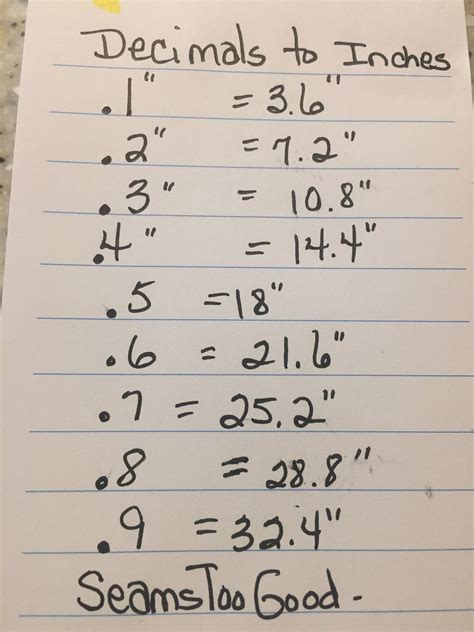 Decimals to Inches
.1" = 3.6"
.2" = 7.2"
.3" = 10.8"
.4" = 14.4"
.5 =18"
.6 = 21.6"
.7 = 25.2"
.8 = 28.8"
.9 = 32.4"
SeamsTooGood-